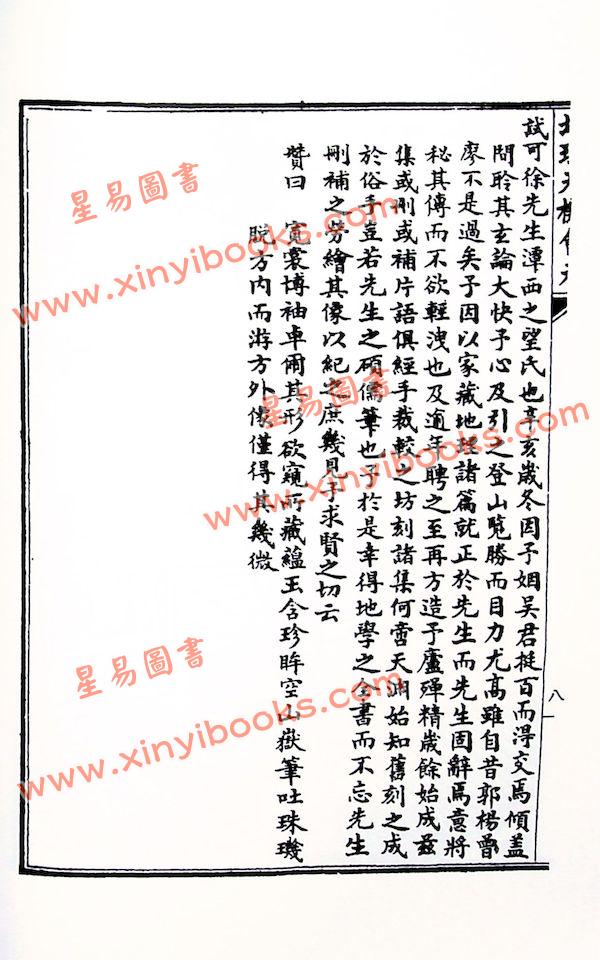 試可徐先生潭西之望氏也辛亥歲冬因予姻吳君挺百而得交焉傾蓋
問聆其玄論大快予心及引之登山覽勝而目力尤高雖自昔郭楊曾
廖不是過矣予因以家藏地理諸篇就正於先生而先生固辭焉意將
秘其傳而不欲輕洩也及逾年聘之至再方造予廬殫精歲餘始成茲
集或刪或補片語俱經手裁較之坊刻諸集何啻天淵始知舊刻之成
於俗手豈若先生之碩儒筆也予於是幸得地學之全書而不忘先生
刪補之勞繪其像以紀之庶幾見予求賢之切云
贊曰 寬裳博袖卓爾其形欲窺所藏蘊玉含珍眸空山嶽筆吐珠璣
脫方內而游方外像僅得其幾微
八
星易圖書
www.xinyibooks.com
星易圖書
www.xinyibooks.com
星易圖書
www.xinyibooks.com